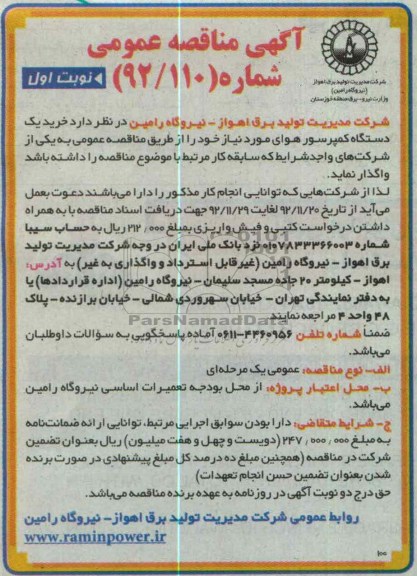 آگهی مناقصه عمومی
شماره (۹۲/۱۱۰)
نوبت اول
شرکت مدیریت تولید برق اهواز
(نیروگاه رامین)
وزارت نیرو - برق منطقه خوزستان
شرکت مدیریت تولید برق اهواز - نیروگاه رامین در نظر دارد خرید یک
دستگاه کمپرسور هوای مورد نیاز خود را از طریق مناقصه عمومی به یکی از
شرکت‌های واجد شرایط که سابقه کار مرتبط با موضوع مناقصه را داشته باشد
واگذار نماید.
لذا از شرکت‌هایی که توانایی انجام کار مذکور را دارا می‌باشند دعوت بعمل
می‌آید از تاریخ ۹۲/۱۱/۲۰ لغایت ۹۲/۱۱/۲۹ جهت دریافت اسناد مناقصه با به همراه
داشتن درخواست کتبی و فیش واریزی بمبلغ ۲۱۲٫۰۰۰ ریال به حساب سیبا
شماره ۰۱۰۷۸۳۳۳۶۶۰۰۳ نزد بانک ملی ایران در وجه شرکت مدیریت تولید
برق اهواز - نیروگاه رامین (غیرقابل استرداد و واگذاری به غیر) به آدرس:
اهواز - کیلومتر ۲۰ جاده مسجد سلیمان - نیروگاه رامین (اداره قراردادها) یا
به دفتر نمایندگی تهران - خیابان سهروردی شمالی - خیابان برازنده - پلاک
۴۸ واحد ۴ مراجعه نمایند
ParsNamadData
ضمناً شماره تلفن ۴۴۶۰۹۵۶-۰۶۱۱ آماده پاسخگویی به سؤالات داوطلبان
می‌باشد.
الف- نوع مناقصه: عمومی یک مرحله‌ای
ب- محل اعتبار پروژه: از محل بودجه تعمیرات اساسی نیروگاه رامین
می‌باشد.
ج- شرایط متقاضی: دارا بودن سوابق اجرایی مرتبط، توانایی ارائه ضمانت‌نامه
به مبلغ ۲۴۷٫۰۰۰٫۰۰۰ (دویست و چهل و هفت میلیون) ریال بعنوان تضمین
شرکت در مناقصه (همچنین مبلغ ده درصد کل مبلغ پیشنهادی در صورت برنده
شدن بعنوان تضمین حسن انجام تعهدات)
حق درج دو نوبت آگهی در روزنامه به عهده برنده مناقصه می‌باشد.
روابط عمومی شرکت مدیریت تولید برق اهواز- نیروگاه رامین
www.raminpower.ir
۱۰۰